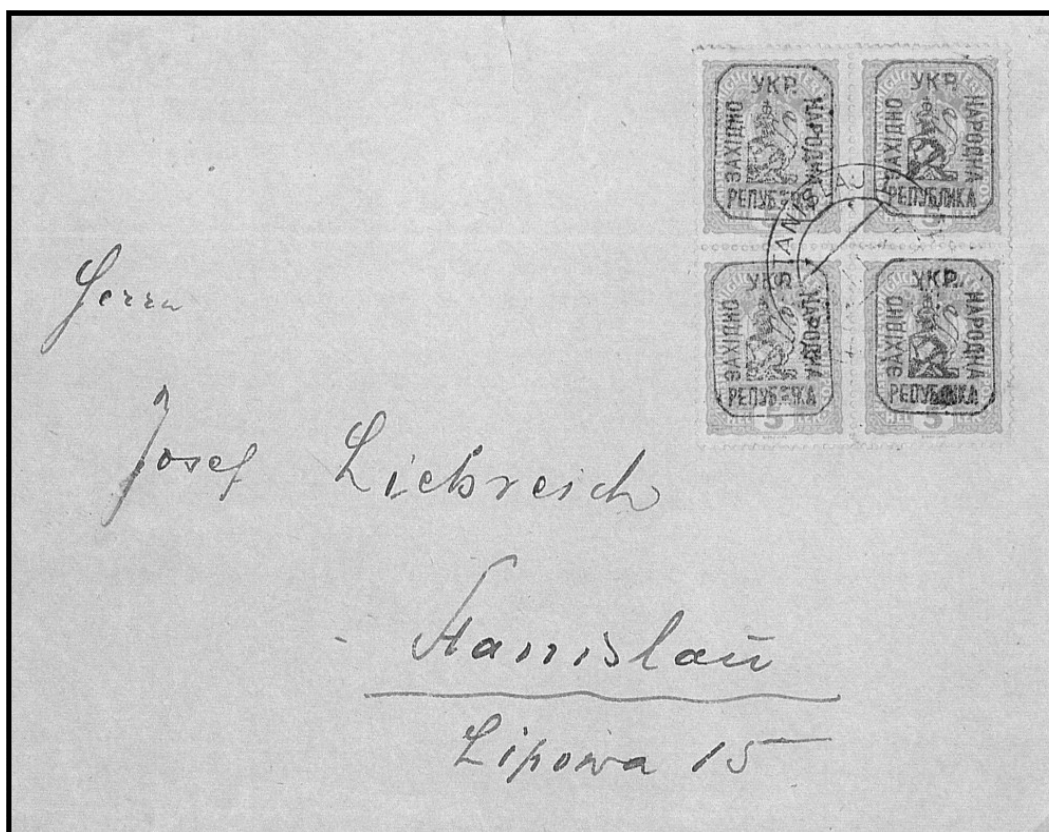 УКР.
ЗАХІДНО
НАРОДНА
РЕПУБЛИКА
5
УКР.
ЗАХІДНО
НАРОДНА
РЕПУБЛИКА
5
STANISLAU
УКР.
ЗАХІДНО
НАРОДНА
РЕПУБЛИКА
5
УКР.
ЗАХІДНО
НАРОДНА
РЕПУБЛИКА
5
Herrn
Josef Liebreich
Stanislaŭ
Lipowa 15